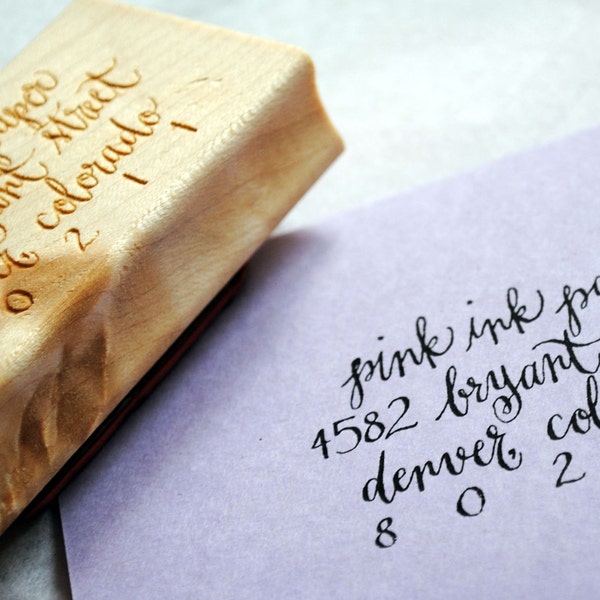 aper
street
colorado
0 2 1 1
pink ink pa
4582 bryant
denver, col
8 0 2